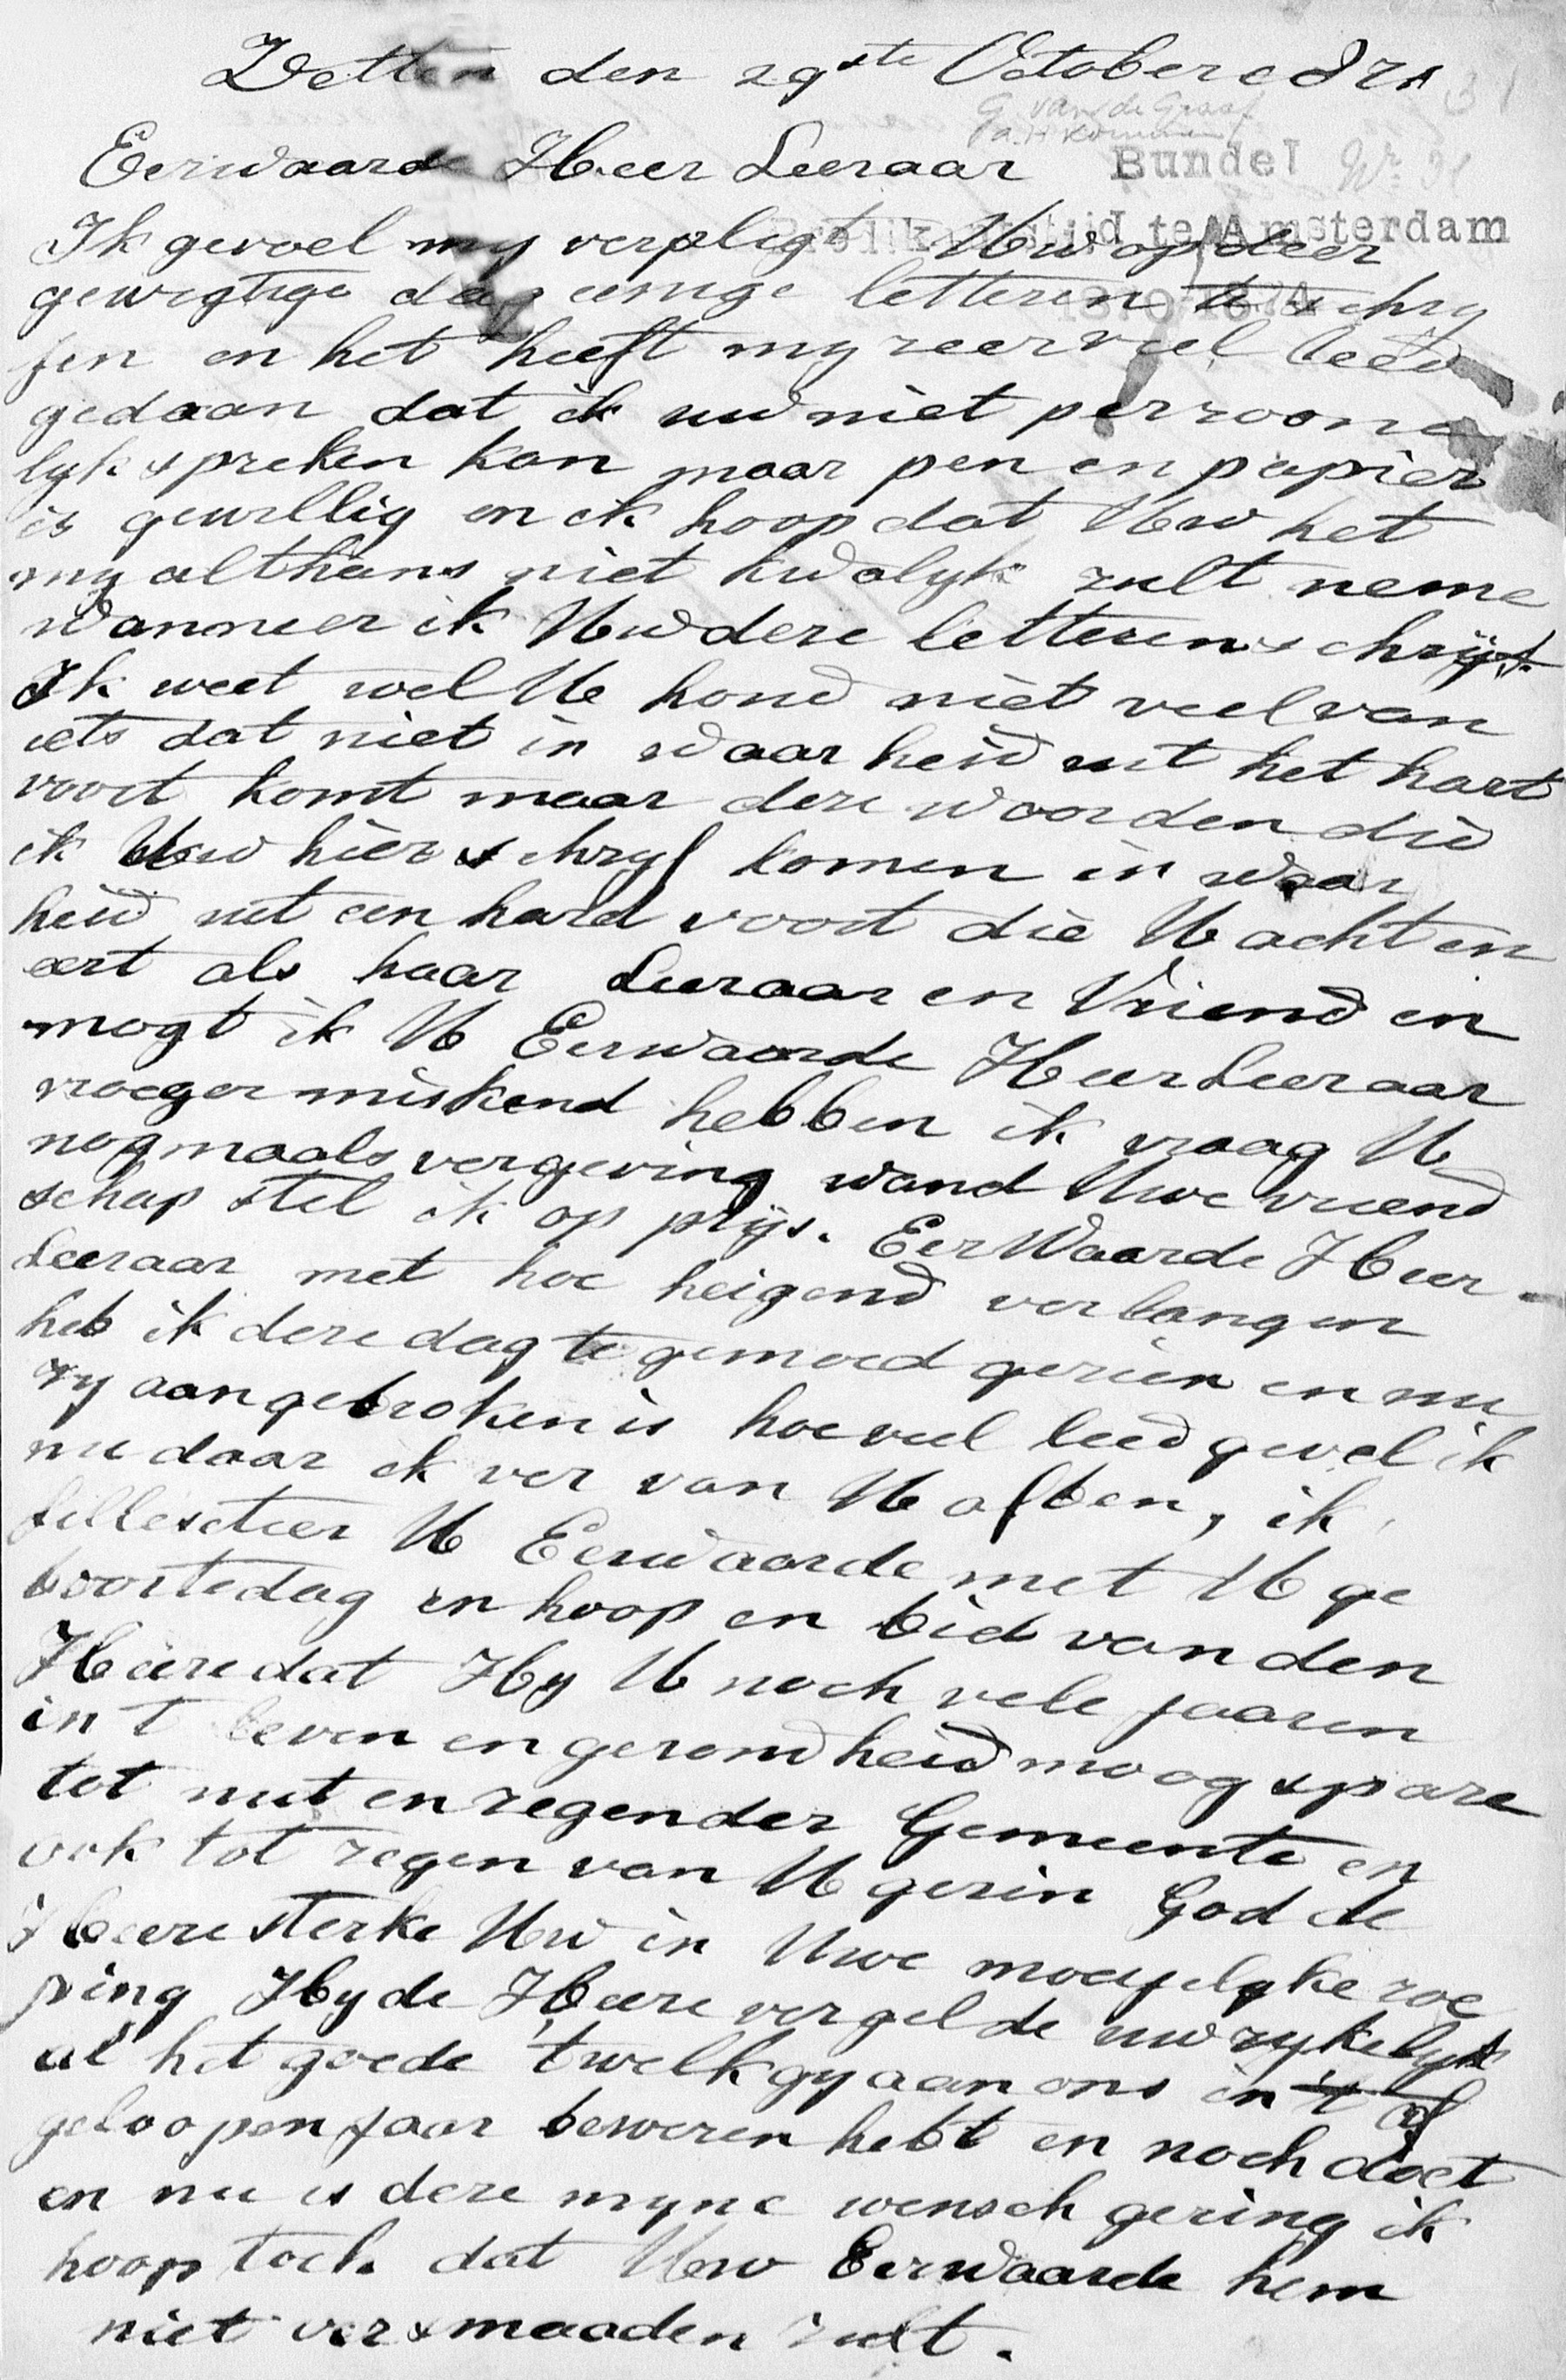 Zetten den 29ste October 1871
G van de Graaf
a. H Kommer
Eerwaarde Heer Leeraar
Bundel Nr 31
Ik gevoel my verpligt Uw op deer
Predikantstijd te Amsterdam
gewigtige dag eenige letteren te schry
fen en het heeft my zeer veel leed
gedaan dat ik uw niet perzoone
lyk spreken kan maar pen en papier
is gewillig en ik hoop dat Uw het
my althans niet kwalyk zult neme
wanneer ik Uw deze letteren schrijf
Ik weet wel U houd niet veel van
iets dat niet in waarheid uit het hart
voort komt maar deze woorden die
ik Uw hier schryf komen in waar
heid uit een hard voort die U acht en
eert als haar Leeraar en Vriend en
mogt ik U Eerwaarde Heer Leeraar
vroeger miskend hebben ik vraag U
nogmaals vergeving wand Uwe vriend
schap stel ik op prijs. EerWaarde Heer
Leeraar met hoe heigend verlangen
heb ik deze dag te gemoed gezien en nu
zy aangebroken is hoeveel leed gevoel ik
nu daar ik ver van U af ben, ik
felleseteer U Eerwaarde met U ge
boortedag en hoop en bid van den
Heere dat Hy U noch vele jaaren
in t leven en gezondheid moog spare
tot nut en zegen der Gemeente en
ook tot zegen van U gezin God de
Heere sterke Uw in Uwe moeyelyke roe
ping Hy de Heere vergelde uw rykelyk
al het goede 't welk gy aan ons in 't af
geloopen jaar bewezen hebt en noch doet
en nu is deze myne wensch gering ik
hoop toch dat Uw Eerwaarde hem
niet versmaaden zult.